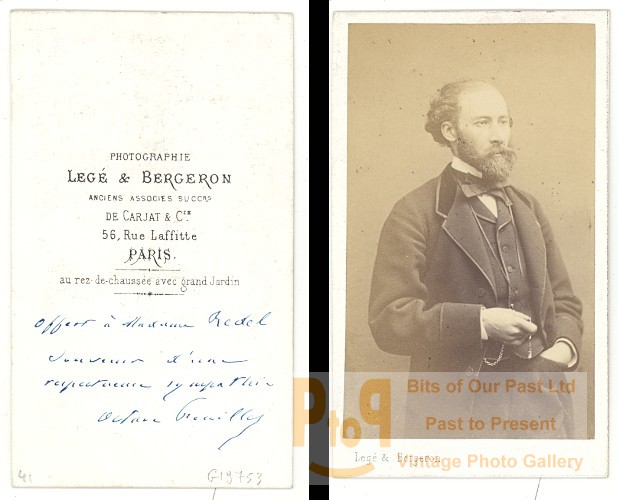 PHOTOGRAPHIE
LEGÉ & BERGERON
ANCIENS ASSOCIÉS SUCCRS
DE CARJAT & CIE
56, Rue Laffitte
PARIS.
au rez-de-chaussée avec grand Jardin
offert à Madame Redel
souvenir d'une
respectueuse sympathie
Octave Feuillet
41
G19753
Legé & Bergeron
PtoP
Bits of Our Past Ltd
Past to Present
Vintage Photo Gallery